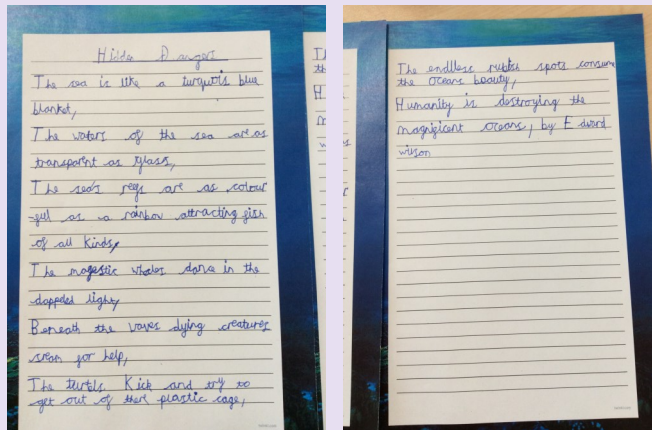 Hidden Dangers
The sea is like a turquois blue
blanket,
The waters of the sea are as
transparent as glass,
The sea's reefs are as colour
-ful as a rainbow attracting fish
of all kinds,
The magestic whales dance in the
dappeled light,
Beneath the waves dying creatures
scream for help,
The turtls Kick and try to
get out of there plastic cage,
The endless rubbish spots consume
the oceans beauty,
Humanity is destroying the
magnificent oceans, by Edward
wilson